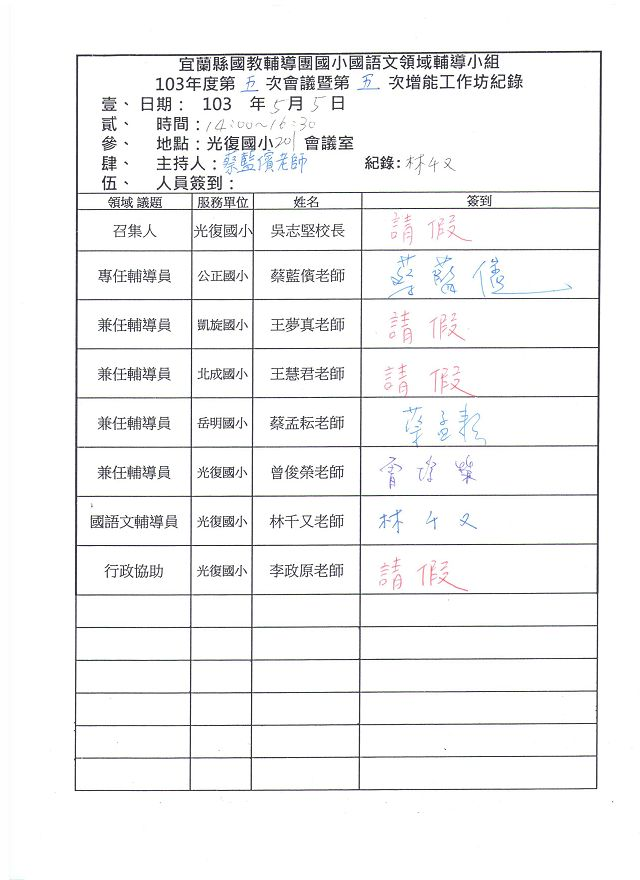 宜蘭縣國教輔導團國小國語文領域輔導小組
103年度第 五 次會議暨第 五 次增能工作坊紀錄
壹、 日期： 103 年 5 月 5 日
貳、 時間：14:00~16:30
參、 地點：光復國小201會議室
肆、 主持人：蔡藍儐老師 紀錄：林千又
伍、 人員簽到：
領域 議題 服務單位 姓名 簽到
召集人 光復國小 吳志堅校長 請假
專任輔導員 公正國小 蔡藍儐老師 蔡藍儐
兼任輔導員 凱旋國小 王夢真老師 請假
兼任輔導員 北成國小 王慧君老師 請假
兼任輔導員 岳明國小 蔡孟耘老師 蔡孟耘
兼任輔導員 光復國小 曾俊榮老師 曾俊榮
國語文輔導員 光復國小 林千又老師 林千又
行政協助 光復國小 李政原老師 請假